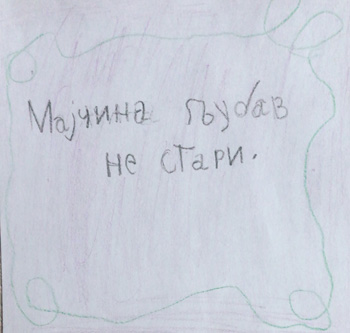 Мајчина љубав
не стари.